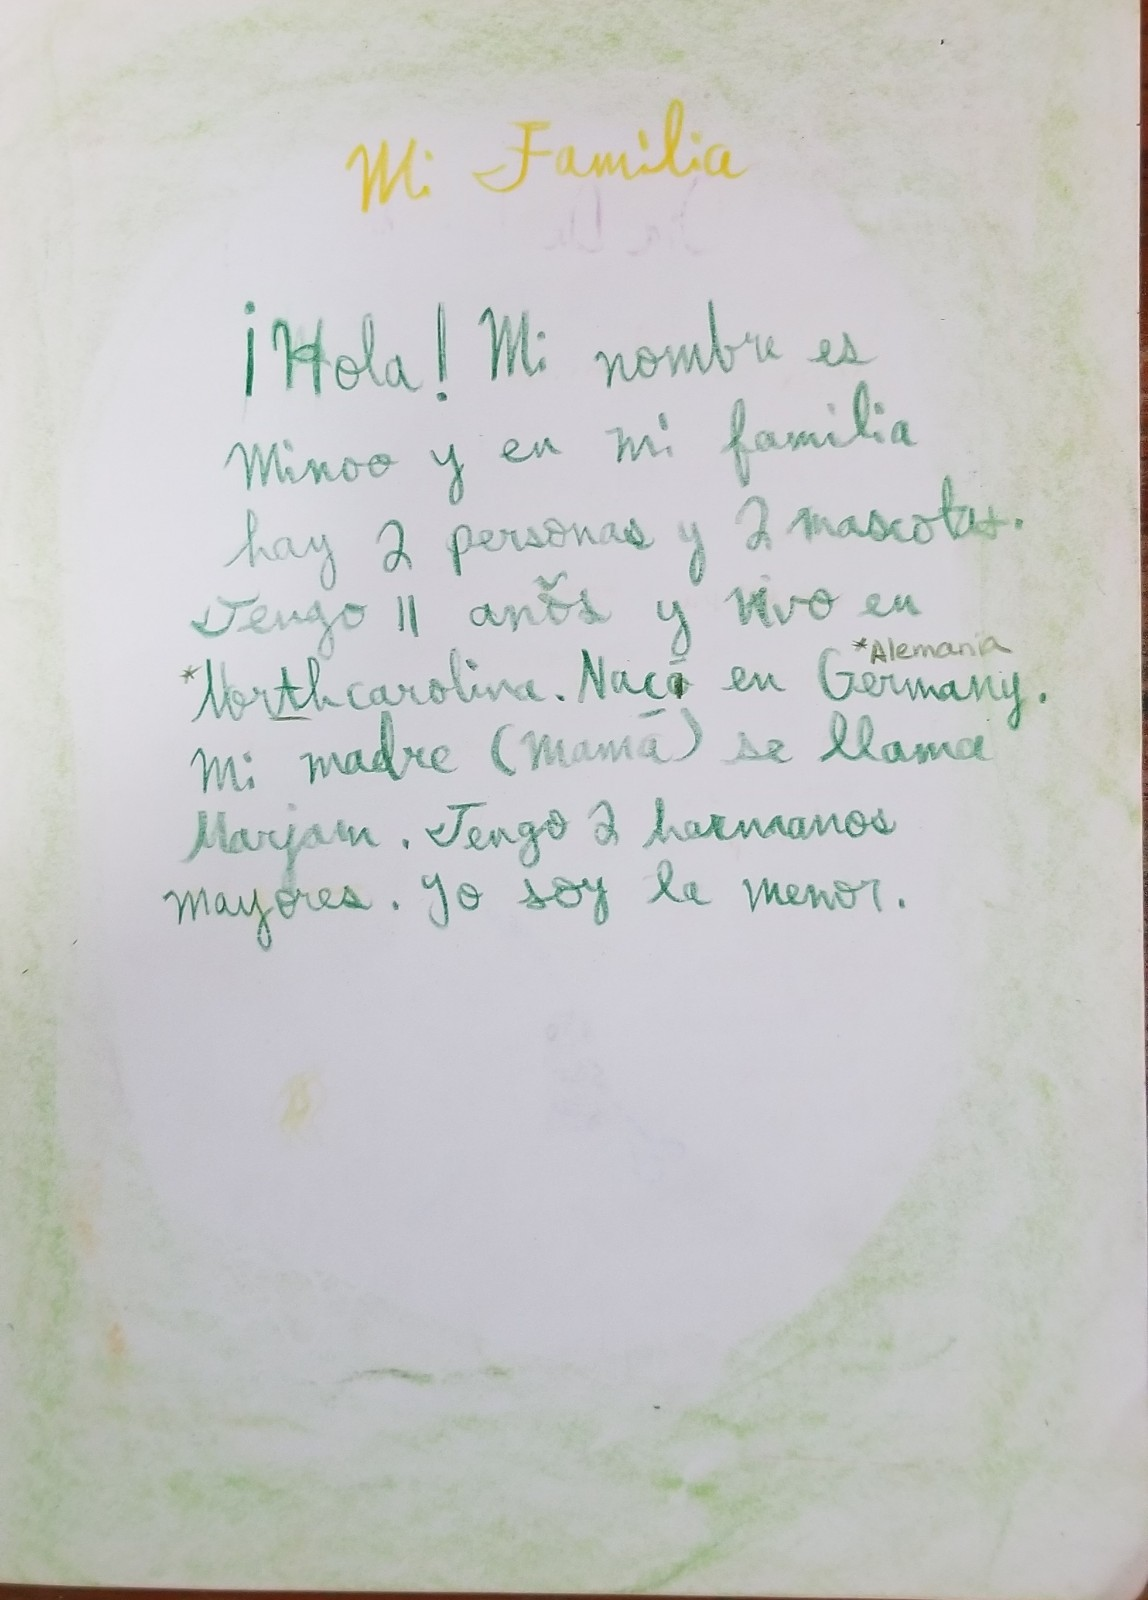 Mi Familia
¡Hola! Mi nombre es
Minoo y en mi familia
hay 2 personas y 2 mascotas.
Tengo 11 anõs y vivo en
*Northcarolina. Nací en Germany.
*Alemania
Mi madre (mamá) se llama
Marjam. Tengo 2 harmanos
mayores. Yo soy la menor.